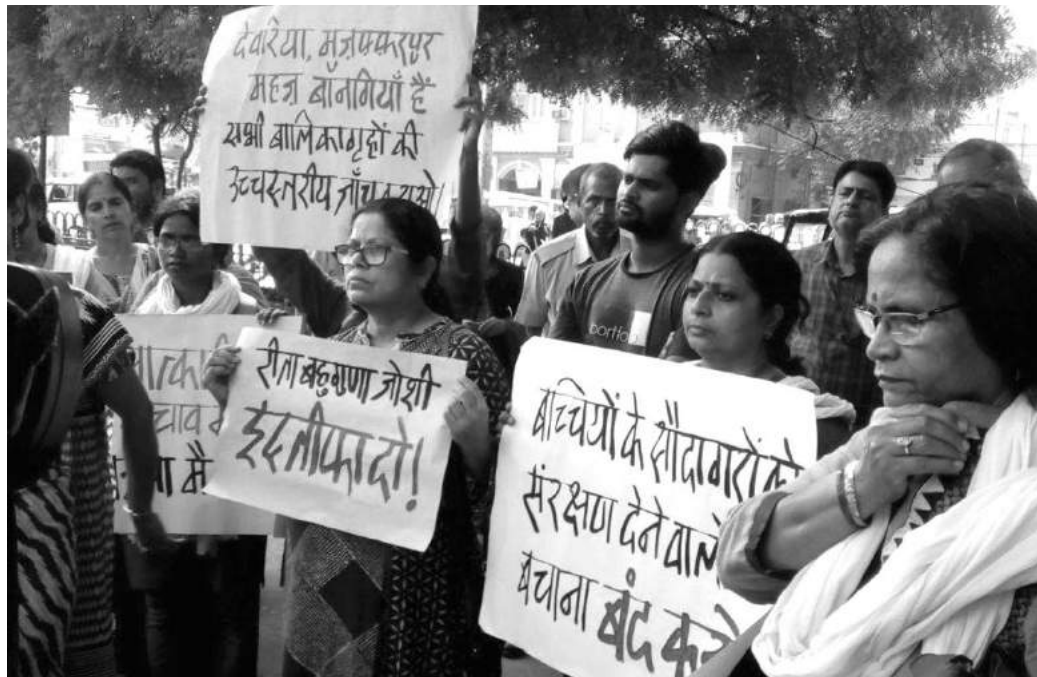 देवरिया, मुज़फ्फरपुर
महज़ बानगियाँ हैं
सभी बालिकागृहों की
उच्चस्तरीय जाँच कराओ।
रीता बहुगुणा जोशी
इस्तीफा दो!
बच्चियों के सौदागरों को
संरक्षण देने वाले
बचाना बंद करो
portfolio